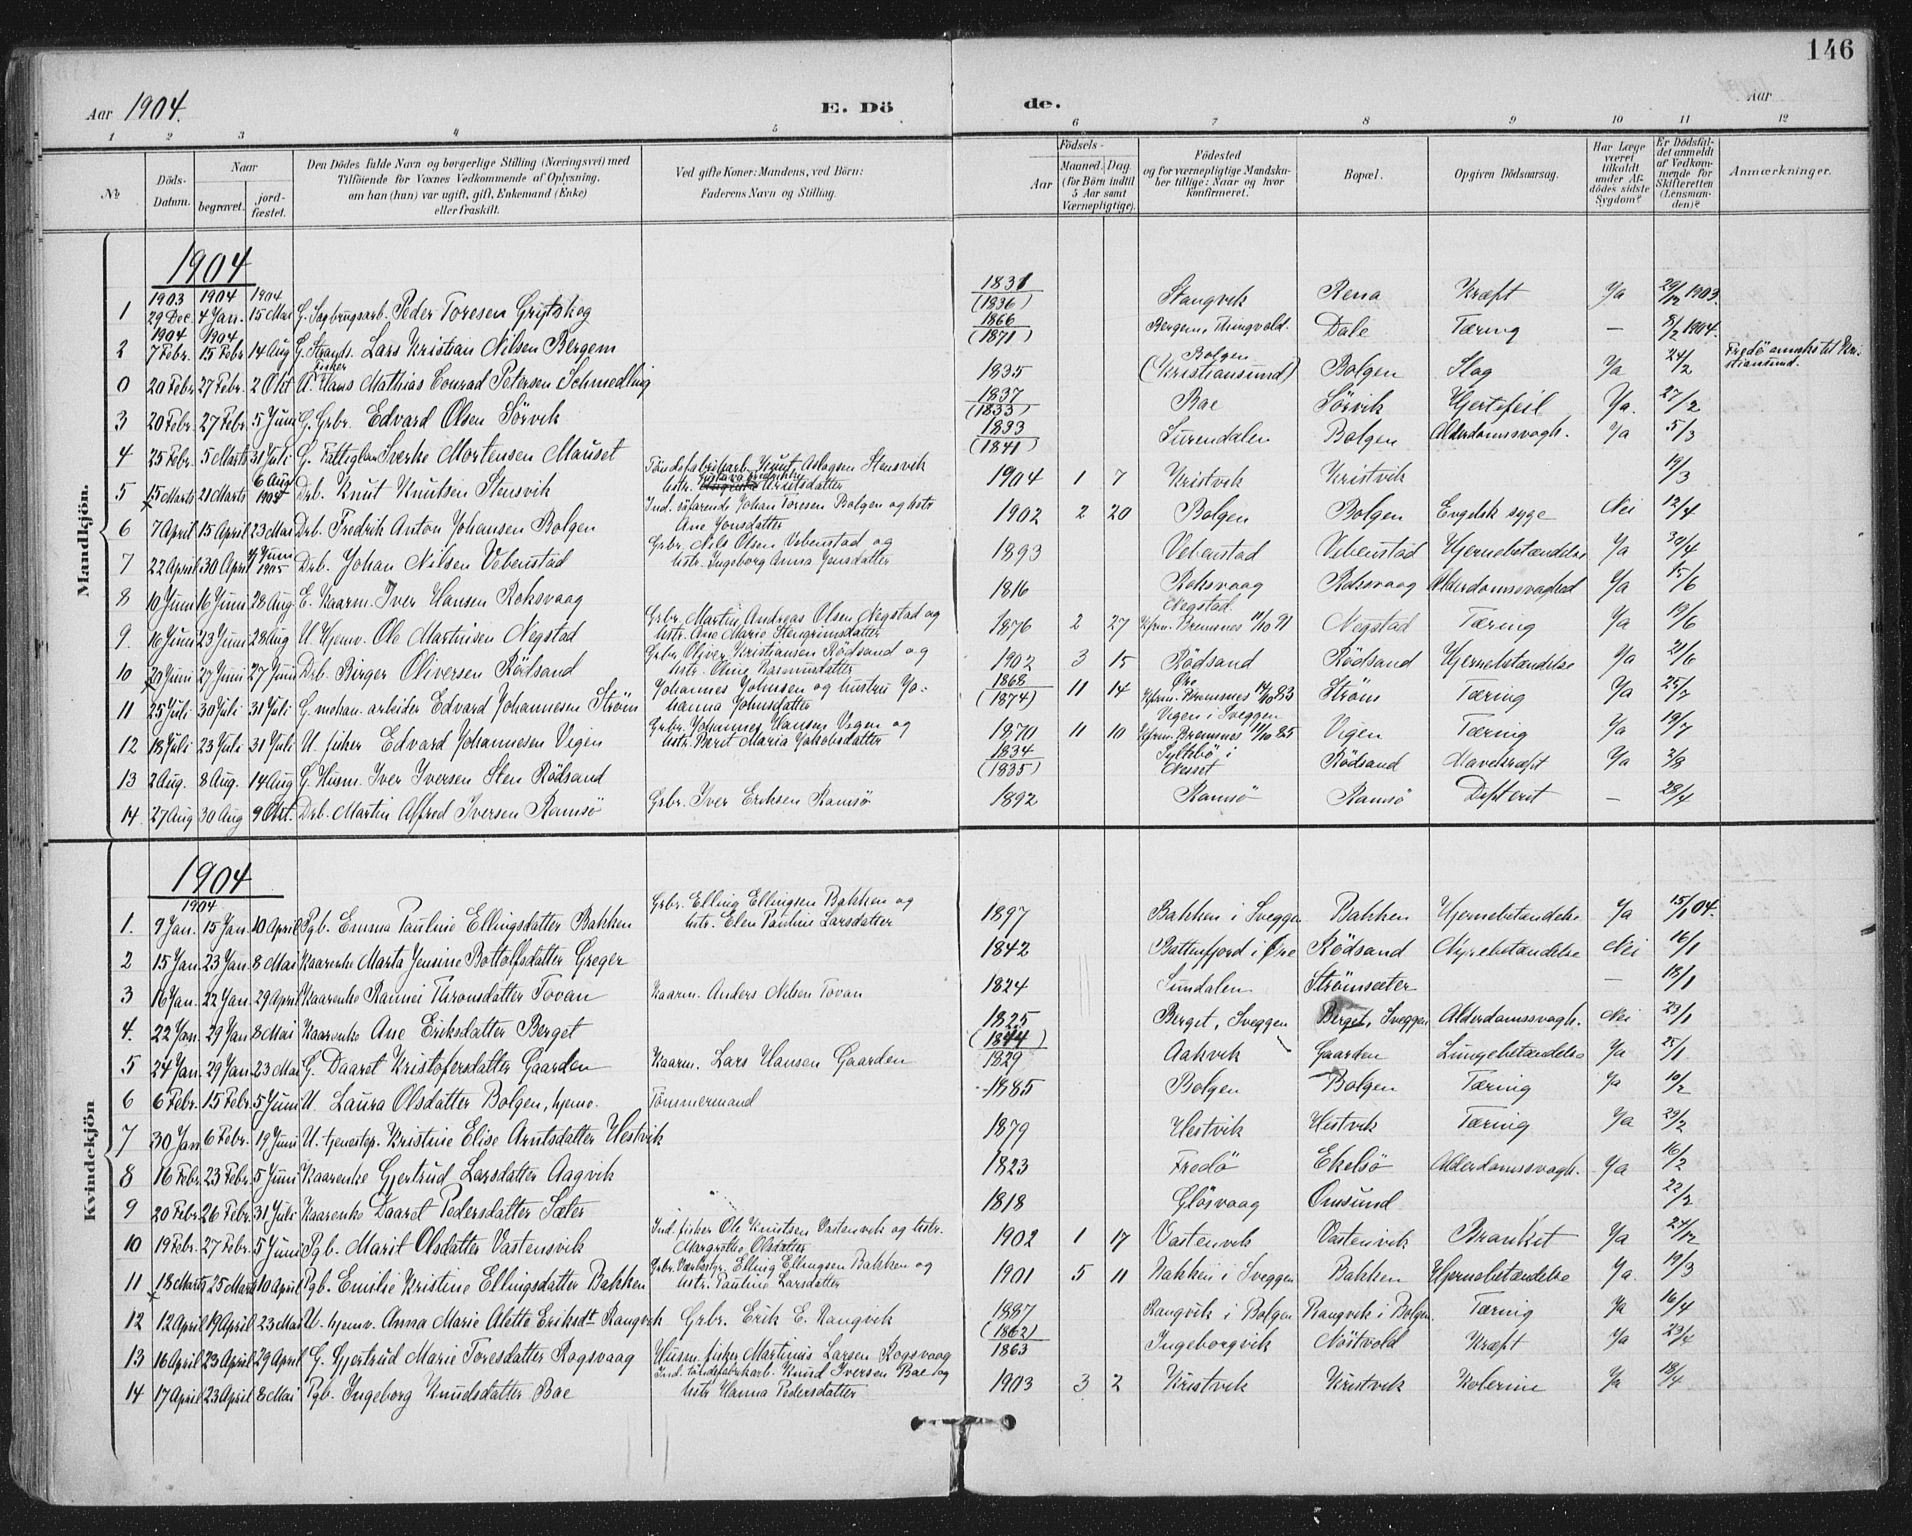 146
Aar 1904.
E. Dö de.
Aar
1 2 3 4 5 6 7 8 9 10 11 12
No
Döds-Datum.
Naar
begravet.
jord-fæstet.
Den Dödes fulde Navn og borgerlige Stilling (Næringsvei) med
Tilföiende for Voxnes Vedkommende af Oplysning,
om han (hun) var ugift, gift, Enkemand (Enke)
eller fraskilt.
Ved gifte Koner: Mandens, ved Börn:
Faderens Navn og Stilling.
Födsels-
Aar
Maaned. Dag
(for Börn indtil
5 Aar samt
Værnepligtige).
Födested
og for værnepligtige Mandska-
ber tillige: Naar og hvor
konfirmeret.
Bopæl.
Opgiven Dödsaarsag.
Har Læge
været
tilkaldt
under Af-
dödes sidste
Sygdom?
Er Dödsfal-
det anmeldt
af Vedkom-
mende for
Skifteretten
(Lensman-
den)?
Anmærkninger.
Mandkjön.
1904
1903 1904 1904
1 29 Dec. 4 Jan. 15 Mai G. Sagbrugsarb. Peder Toresen Grytskog 1831 (1836) Stangvik Rena Kræft Ja 29/12 1903.
1904 1904
2 7 Febr. 15 Febr 14 Aug G. Strands. Lars Kristian Nilsen Bergem 1866 (1871) Bergem, Thingvold. Dale Tæring — 8/2 1904.
0 20 Febr 27 Febr. 2 Okt Fisker Hans Mathias Conrad Petersen Schmedling 1835 Bolgen (Kristiansund) Bolgen Slag Ja 24/2 Fredö annekstil Kri-stiansund.
3 20 Febr. 27 Febr 5 Juni G. Grbr. Edvard Olsen Sörvik 1837 (1833) Bae Sörvik Hjertefeil Ja. 27/2
4 25 Febr. 5 Marts 31 Juli G. Fattiglem Sverke Mortensen Mauset 1833 (1841) Surendalen Bolgen Alderdomssvagh. Ja 5/3
5 15 Marts 21 Marts 6 Aug 1905 Drb. Knut Knutsen Stensvik Töndefabrikarb. Knut Aslagsen Stensvik hstr. Knutsdatter 1904 1 7 Kristvik Kristvik 19/3
6 7 April 15 April 23 Mai Drb. Fredrik Anton Johansen Bolgen Ind. söfarende Johan Toresen Bolgen og hstr Ane Jonsdatter 1902 2 20 Bolgen Bolgen Engelsk syge Nei 12/4
7 22 April 30 April Juni 1905 Drb. Johan Nilsen Vebenstad Grbr. Nils Olsen Vebenstad og hstr. Ingeborg Anna Jensdatter 1893 Vebenstad Vebenstad Hjernebetændelse Ja 30/4
8 10 Juni 16 Juni 28 Aug E. Kaarm. Iver Hansen Roksvaag 1816 Roksvaag Roksvaag Alderdomssvaghed Ja 15/6
9. 16 Juni 23 Juni 28 Aug U. Hjemv. Ole Martinsen Negstad Grbr. Martin Andreas Olsen Negstad og hstr. Ane Marie Stengrimsdatter 1876 2 27 Negstad. Kfrm. Bremsnes 11/10 91 Negstad Tæring Ja 19/6
10 20 Juni 27 Juni 27 Juni Drb. Birger Oliversen Rödsand Grbr. Oliver Kristiansen Rödsand og hstr. Oline Rasmusdatter 1902 3 15 Rödsand Rödsand Hjernebetændelse Ja 21/6
11 25 Juli 30 Juli 31 Juli G. mekan. arbeider Edvard Johannesen Ström Johannes Johnsen og hustru Jo-hanna Johnsdatter 1868 (1874) 11 14 Öre Kfrm. Bremsnes 14/10 83 Ström Tæring Ja 25/7
12 18 Juli 23 Juli 31 Juli U. fisker Edvard Johannesen Vigen Grbr. Johannes Hansen Vigen og hstr. Berit Maria Jakobsdatter 1870 11 10 Vigen i Sveggen Kfrm. Bremsnes 11/10 85 Vigen Tæring Ja 19/7
13 2 Aug. 8 Aug. 14 Aug G. Husm. Iver Iversen Sten Rödsand 1834 (1835) Syltebö i Nesset Rödsand Mavekræft Ja 2/8
14. 27 Aug 30 Aug 9 Okt. Drb. Martin Alfred Iversen Ramsö Grbr. Iver Eriksen Ramsö 1892 Ramsö Ramsö Difterit — 28/4
Kvindekjön
1904
1904
1. 9 Jan. 15 Jan. 10 April Pgb. Emma Pauline Ellingsdatter Bakken Grbr. Elling Ellingsen Bakken og hstr. Elen Pauline Larsdatter 1897 Bakken i Sveggen Bakken Hjernebetændelse Ja 15/1 04.
2 15 Jan. 23 Jan. 8 Mai Kaarenke Marta Jensine Bottolfsdatter Greger 1842 Battenfjord i Öre Rödsand Nyrebetændelse Nei 16/1
3 16 Jan. 22 Jan. 29 April Kaarenke Rannei Thronsdatter Tovan Kaarm. Anders Nilsen Tovan 1824 Sundalen Strömsæter — 18/1
4. 22 Jan. 29 Jan. 8 Mai Kaarenke Ane Eriksdatter Berget 1825 Berget, Sveggen Berget, Sveggen Alderdomssvagh. Nei 23/1
5 24 Jan. 29 Jan. 23 Mai G. Daaret Kristofersdatter Gaarden Kaarm. Lars Hansen Gaarden (1844) 1829 Aakvik Gaarden Lungebetændelse Ja 25/1
6 6 Febr. 15 Febr. 5 Juni U. Laura Olsdatter Bolgen, hjemv. Tömmermand 1885 Bolgen Bolgen Tæring Ja 10/2
7 30 Jan 6 Febr. 19 Juni U. tjenestep. Kristine Elise Arntsdatter Hestvik 1879 Hestvik Hestvik Tæring Ja 29/2
8 16 Febr. 23 Febr. 5 Juni Kaarenke Gjertrud Larsdatter Aagvik 1823 Fredö Ekelsö Alderdomssvagh. Ja 16/2
9 20 Febr. 26 Febr. 31 Juli Kaarenke Daaret Pedersdatter Sæter 1818 Glösvaag Omsund 22/2
10 19 Febr. 27 Febr. 5 Juni Pgb. Marit Olsdatter Vastensvik Ind. fisker Ole Knutsen Vastenvik og hstr. Margrethe Olsdatter 1902 1 17 Vastenvik Vastenvik Bronkit Ja 27/12
11 18 Marts 25 Marts 10 April Pgb. Emilie Kristine Ellingsdatter Bakken Grbr. Værbestyr. Elling Ellingsen Bakken og hstr. Pauline Larsdatter 1901 5 11 Bakken i Sveggen Bakken Hjernebetændelse Ja. 19/3
12 12 April 19 April 23 Mai U. hjemv. Anna Marie Alette Eriksdt Rangvik Grbr. Erik E. Rangvik 1887 Rangvik i Bolgen Rangvik i Bolgen Tæring Ja 16/4
13 16 April 23 April 29 April G. Gjertrud Marie Toresdatter Rogsvaag Husm. fisker Martinus Larsen Rogsvaag (1862) 1863 Ingeborgvik Nöstvold Kræft Ja 23/4
14 17 April 23 April 8 Mai Pgb. Ingeborg Knudsdatter Bae Ind. töndefabrikarb. Knud Iversen Bae og hstr Hanna Pedersdatter 1903 3 2 Kristvik Kristvik Kolerine Ja 18/4